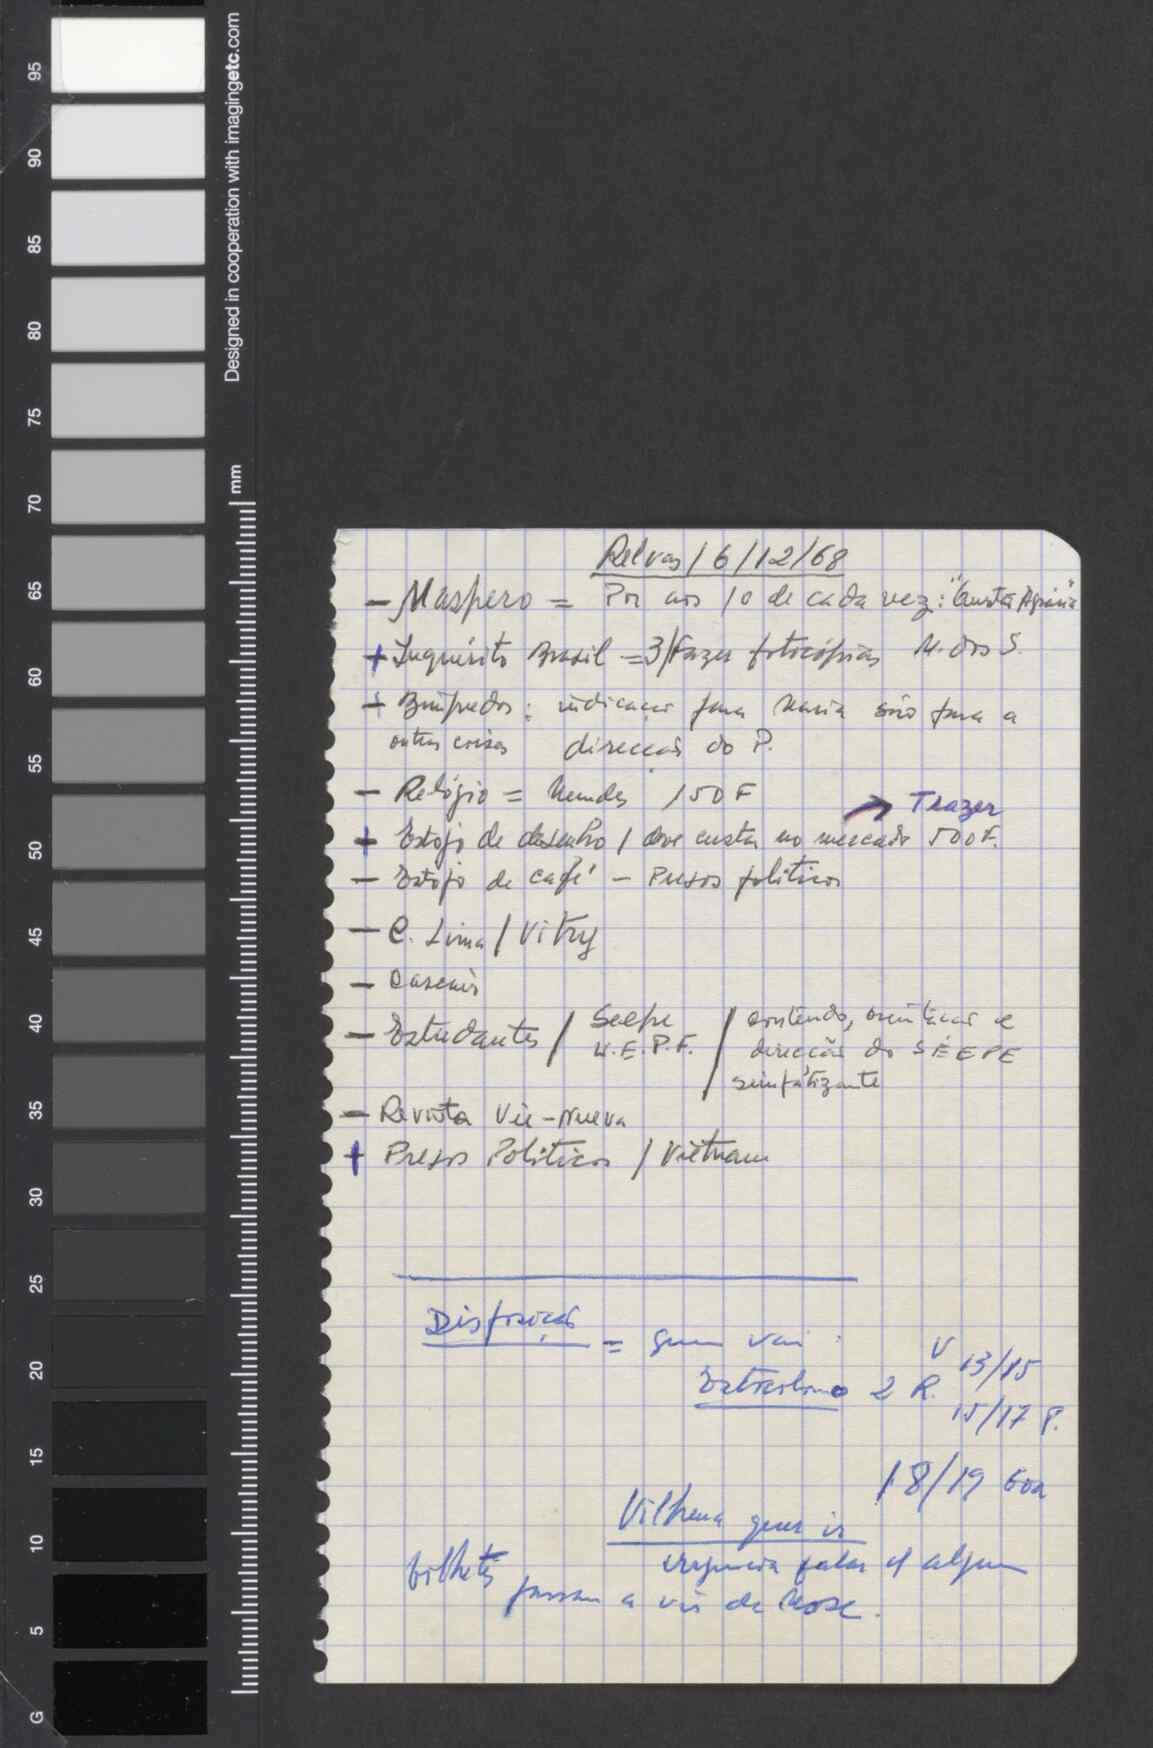 95
90
85
80
75
70
65
60
55
50
45
40
35
30
25
20
15
10
5
G
Designed in cooperation with imagingetc.com
mm
Relvas / 6/12/68
— Maspero = Por aos 10 de cada vez:
+ Inquérito Brasil = 3/ Fazer fotocópias M. dos S.
indicação para Maria não para a
outras coisas direcção do P.
— Relógio = Mendes 150 F
→ Trazer
+ Estojo de desenho / deve custar no mercado 500 F.
— Estojo de café — Presos políticos
— C. Lima / Vitry
— Cascais
— Estudantes / Seepe U.E.P.F. / conteúdo, orientação e
direcção do SEEPE
simpatizante
— Revista Vie-Nueva
+ Presos Políticos / Vietnam
Disposição = quem vai :
Estocolmo 2 R. V 13/15
15/17 P.
18/19
Vilhena quer ir
bilhetes falar c/ alguem
passam a vir de